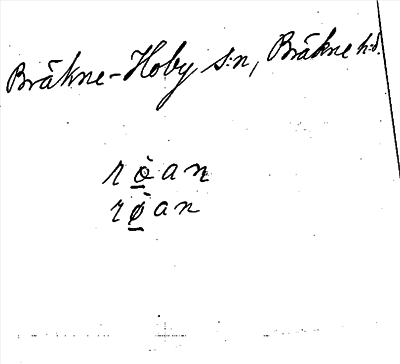 Bräkne-Hoby s:n, Bräkne h:d.
rò̱an
rø̱̀an